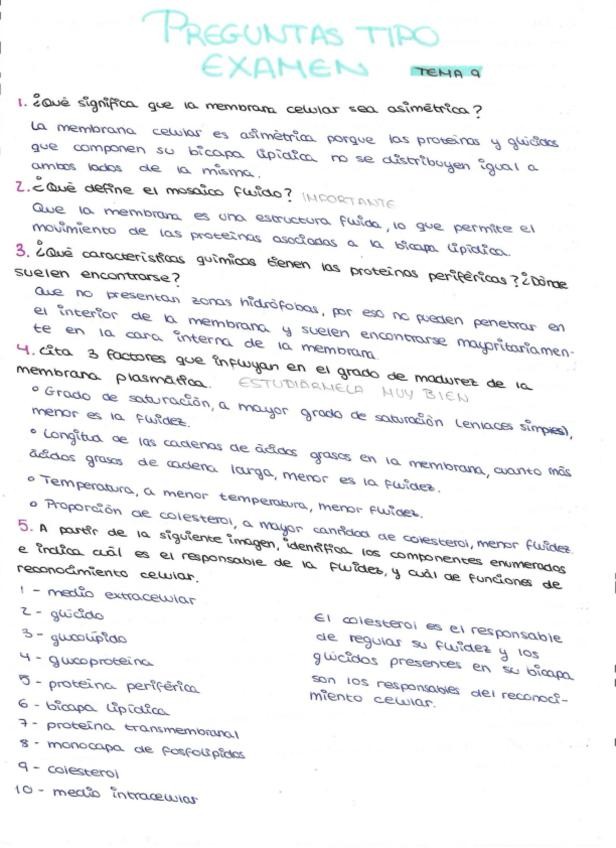 PREGUNTAS TIPO
EXAMEN TEMA 9
1. ¿Qué significa que la membrana celular sea asimétrica?
La membrana celular es asimétrica porque las proteínas y glúcidos
que componen su bicapa lipídica no se distribuyen igual a
ambos lados de la misma.
2. ¿Qué define el mosaico fluido? IMPORTANTE
Que la membrana es una estructura fluida, lo que permite el
movimiento de las proteínas asociadas a la bicapa lipídica.
3. ¿Qué características químicas tienen las proteínas periféricas? ¿Dónde
suelen encontrarse?
Que no presentan zonas hidrófobas, por eso no pueden penetrar en
el interior de la membrana y suelen encontrarse mayoritariamen-
te en la cara interna de la membrana.
4. Cita 3 factores que influyan en el grado de madurez de la
membrana plasmática. ESTUDIÁRMELA MUY BIEN
° Grado de saturación, a mayor grado de saturación (enlaces simples),
menor es la fluidez.
° Longitud de las cadenas de ácidos grasos en la membrana, cuanto más
ácidos grasos de cadena larga, menor es la fluidez.
° Temperatura, a menor temperatura, menor fluidez.
° Proporción de colesterol, a mayor cantidad de colesterol, menor fluidez.
5. A partir de la siguiente imagen, identifica los componentes enumerados
e indica cuál es el responsable de la fluidez, y cuál de funciones de
reconocimiento celular.
1 - medio extracelular
2 - glúcido
3 - glucolípido
4 - glucoproteína
5 - proteína periférica
6 - bicapa lipídica
7 - proteína transmembranal
8 - monocapa de fosfolípidos
9 - colesterol
10 - medio intracelular
El colesterol es el responsable
de regular su fluidez y los
glúcidos presentes en su bicapa
son los responsables del reconoci-
miento celular.